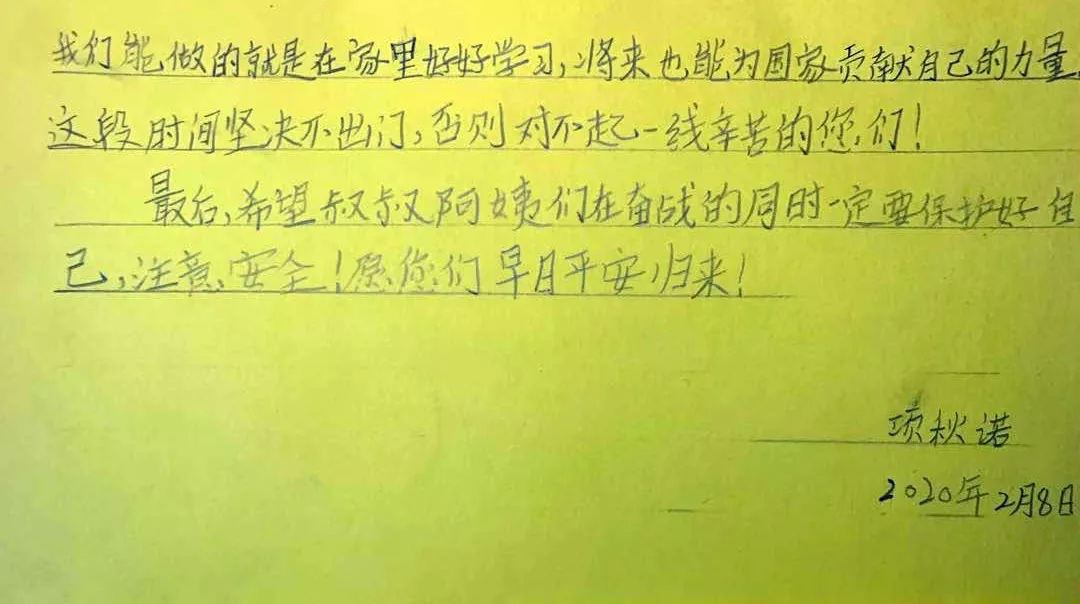 我们能做的就是在家里好好学习,将来也能为国家贡献自己的力量,
这段时间坚决不出门,否则对不起一线辛苦的您们!
最后,希望叔叔阿姨们在奋战的同时一定要保护好自
己,注意安全!愿您们早日平安归来!
项秋诺
2020年2月8日